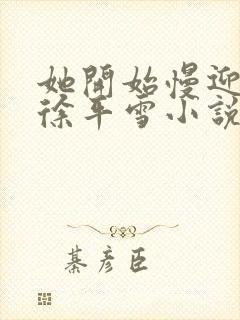 她開始慢迎
徐平雪小說
綦彥臣